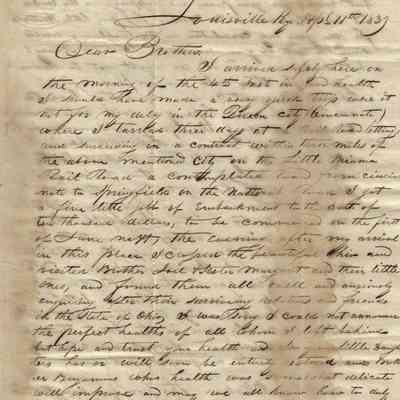 Louisville Ky. Sept. 11th 1837
Dear Brother,
I arrived safely here on
the morning of the 4th inst in good health
I should have made a very quick trip were it
not for my delay in the Queen city (Cincinnati)
where I tarried three days at a Rail Road letting
and succeeding in a contract within two miles of
the above mentioned City on the Little Miami
Rail Road a contemplated road from cincin
nati to Springfield on the National I got
a fine little job of Embankment to the amt of
ten thousand dollars, to be commenced on the first
of June next, the evening after my arrival
in this place I crossed the beautiful Ohio and
visited Brother Joel & Sister Margaret and their little
ones, and found them all well and anxiously
enquiring after their surviving relations and friends
in the State of Ohio, I was sorry I could not announce
the perfect healths of all whom I left behind
but hope and trust your health and little daugh
ters has or will soon be entirely restored and Broth
er Benjamins whos health was somewhat delicate
will improve and may we all know how to duly